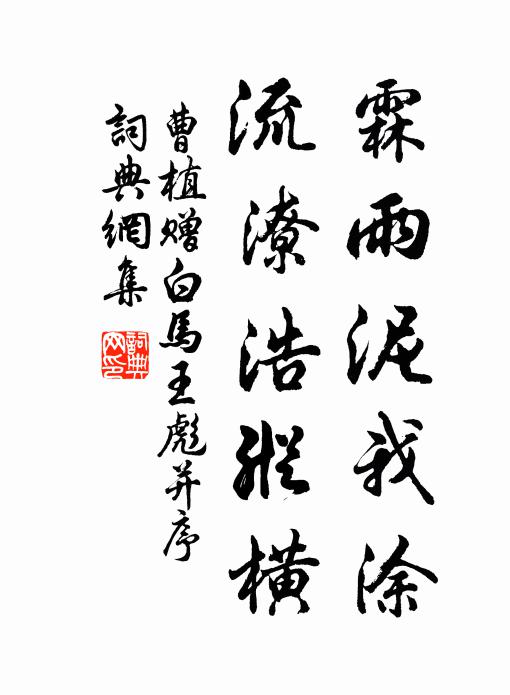 霖雨泥我涂
流潦浩纵横
曹植赠白馬王彪并序
詞典網集
詞典
网印